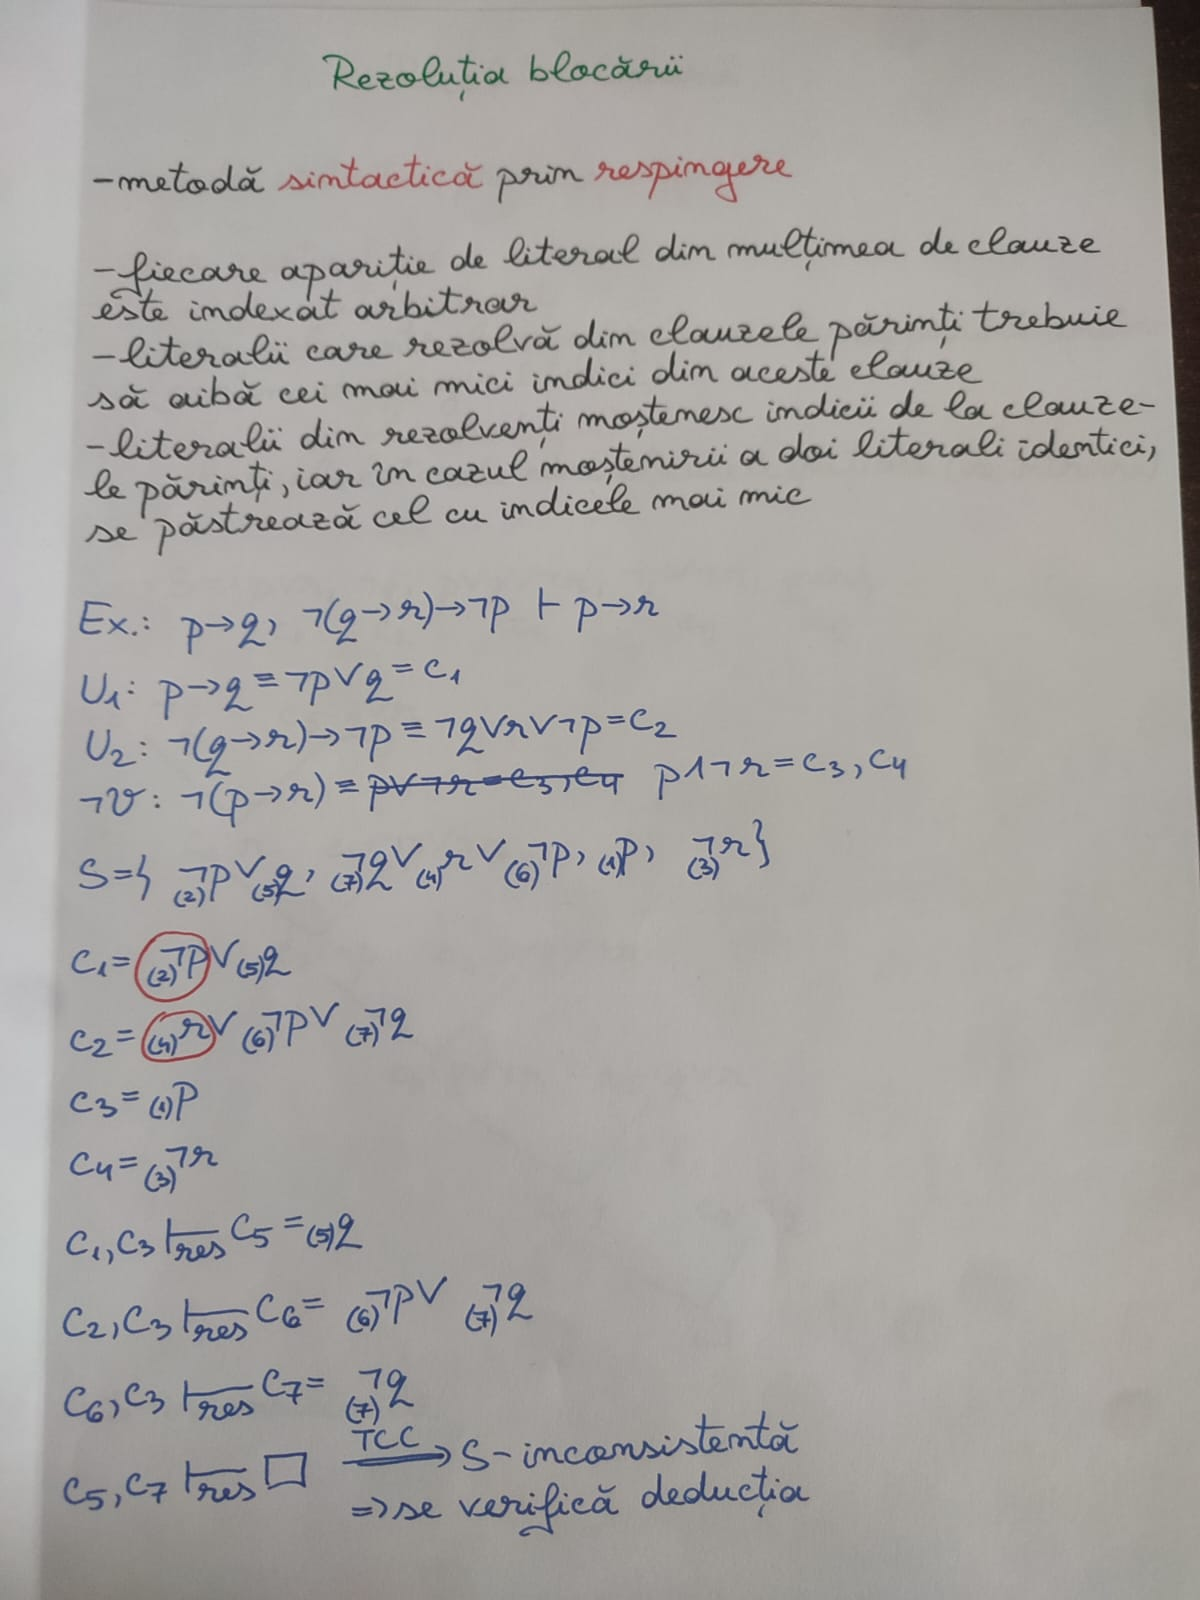 Rezoluția blocării
-metodă sintactică prin respingere
-fiecare apariție de literal din mulțimea de clauze
este indexat arbitrar
-literalii care rezolvă din clauzele părinți trebuie
să aibă cei mai mici indici din aceste clauze
-literalii din rezolvenți moștenesc indicii de la clauze-
le părinți, iar în cazul moștenirii a doi literali identici,
se păstrează cel cu indicele mai mic
Ex.: p→q, ¬(q→r)→¬p ⊢ p→r
U₁: p→q ≡ ¬p∨q = C₁
U₂: ¬(q→r)→¬p ≡ ¬q∨r∨¬p = C₂
¬V: ¬(p→r) ≡ p∨¬r = C₃, C₄ p∧¬r = C₃, C₄
S={ ₍₂₎¬p∨₍₅₎q, ₍₇₎¬q∨₍₄₎r∨₍₆₎¬p, ₍₁₎p, ₍₃₎¬r}
C₁= ₍₂₎¬p∨₍₅₎q
C₂= ₍₄₎r∨ ₍₆₎¬p∨ ₍₇₎¬q
C₃= ₍₁₎p
C₄= ₍₃₎¬r
C₁, C₃ ⊢res C₅ = ₍₅₎q
C₂, C₃ ⊢res C₆ = ₍₆₎¬p∨ ₍₇₎¬q
C₆, C₃ ⊢res C₇ = ₍₇₎¬q
C₅, C₇ ⊢res □ TCC⟹ S-inconsistentă
=> se verifică deducția